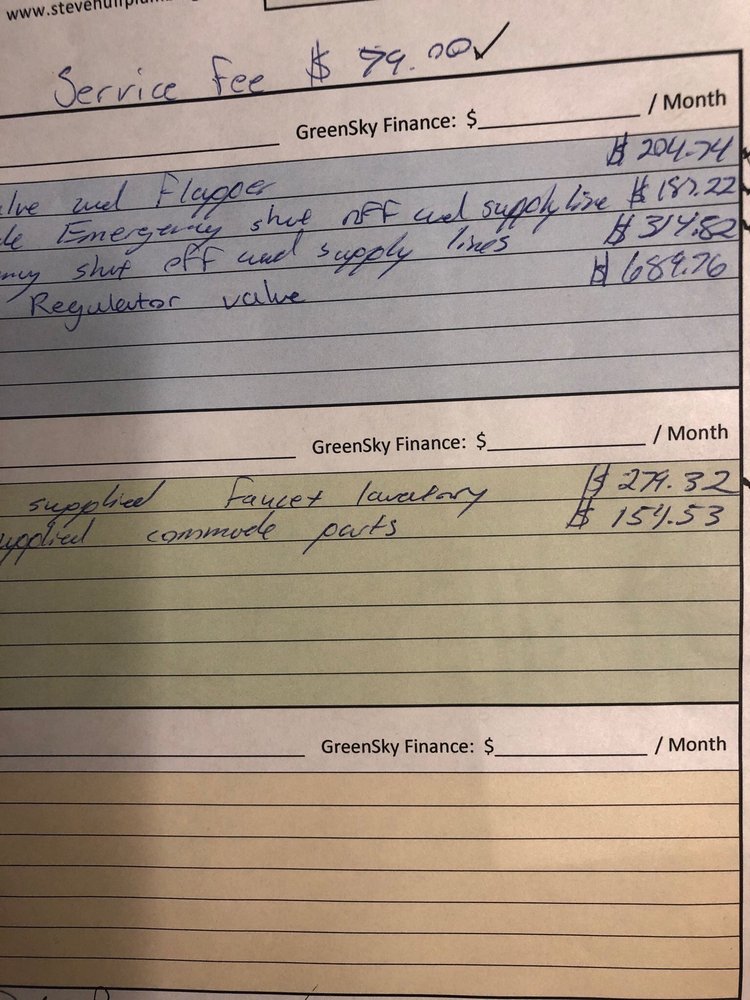 Service Fee $ 79.00✓
GreenSky Finance: $ / Month
and Flapper $ 204.74
Emergency shut off and supply line $ 187.22
shut off and supply lines $ 314.82
Regulator valve $ 689.76
GreenSky Finance: $ / Month
supplied Faucet lavatory $ 279.32
commode parts
GreenSky Finance: $ / Month